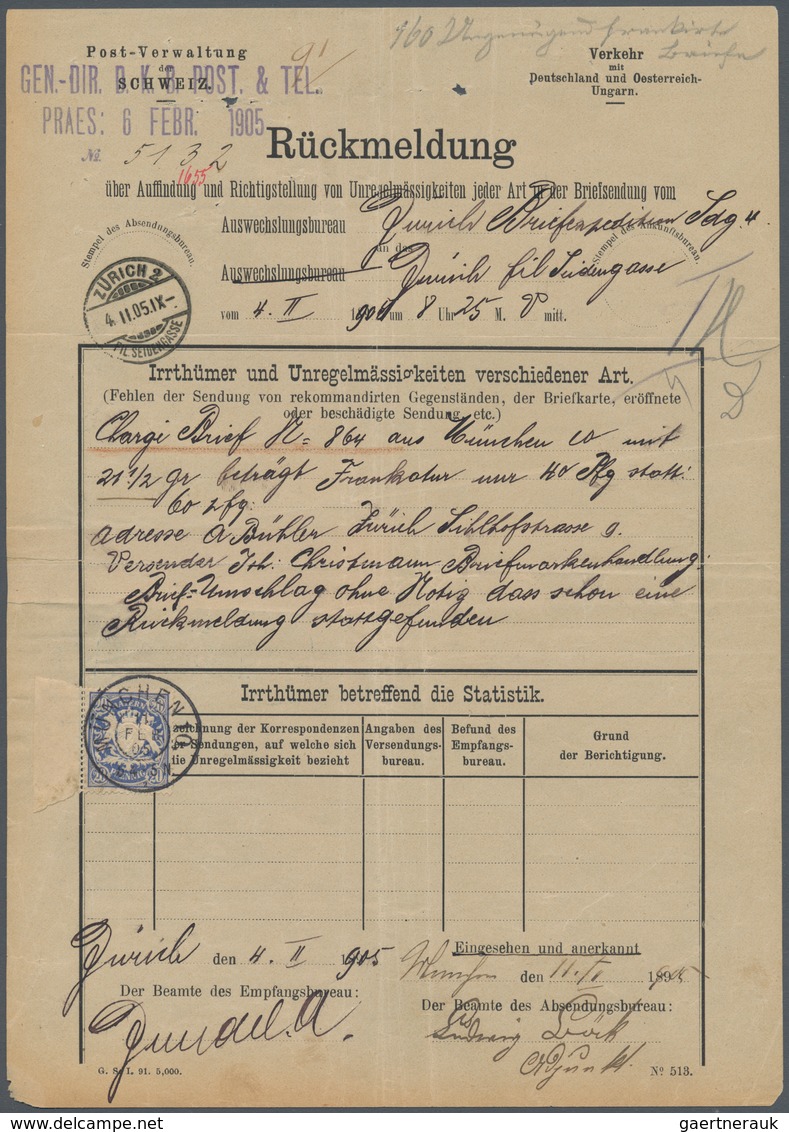 160 Ungenügend frankirte
Briefe
91
Post-Verwaltung
der
SCHWEIZ.
GEN.-DIR. D. K. B. POST. & TEL.
PRAES: 6 FEBR. 1905
No. 5132
1655
Verkehr
mit
Deutschland und Oesterreich-
Ungarn.
Rückmeldung
über Auffindung und Richtigstellung von Unregelmässigkeiten jeder Art in der Briefsendung vom
Auswechslungsbureau Zürich Briefexpedition Sdg 4.
an das
Auswechslungsbureau Zürich fil Seidengasse
vom 4. II 1905 um 8 Uhr 25 M. V mitt.
Stempel des Absendungsbureau.
Stempel des Ankunftsbureau.
ZÜRICH 2
4. II. 05. IX-
FIL. SEIDENGASSE
Irrthümer und Unregelmässigkeiten verschiedener Art.
(Fehlen der Sendung von rekommandirten Gegenständen, der Briefkarte, eröffnete
oder beschädigte Sendung, etc.)
Chargé Brief N= 864 aus München 10 mit
21 1/2 gr beträgt Frankatur nur 40 Pfg statt:
60 Pfg:
Adresse A Bühler Zürich Sihlhofstrasse 9.
Versender Joh: Christmann Briefmarkenhandlung:
Brief-Umschlag ohne Notiz dass schon eine
Rückmeldung stattgefunden
Irrthümer betreffend die Statistik.
zeichnung der Korrespondenzen
r Sendungen, auf welche sich
die Unregelmässigkeit bezieht
Angaben des
Versendungs-
bureau.
Befund des
Empfangs-
bureau.
Grund
der Berichtigung.
MÜNCHEN 10
FEB
05
Zürich den 4. II 1905
Der Beamte des Empfangsbureau:
Eingesehen und anerkannt
München den 11. II 1905
Der Beamte des Absendungsbureau:
Ludwig Böck
Adjunkt.
G. S. I. 91. 5,000.
No 513.
gaertnerauk @ delcampe.net